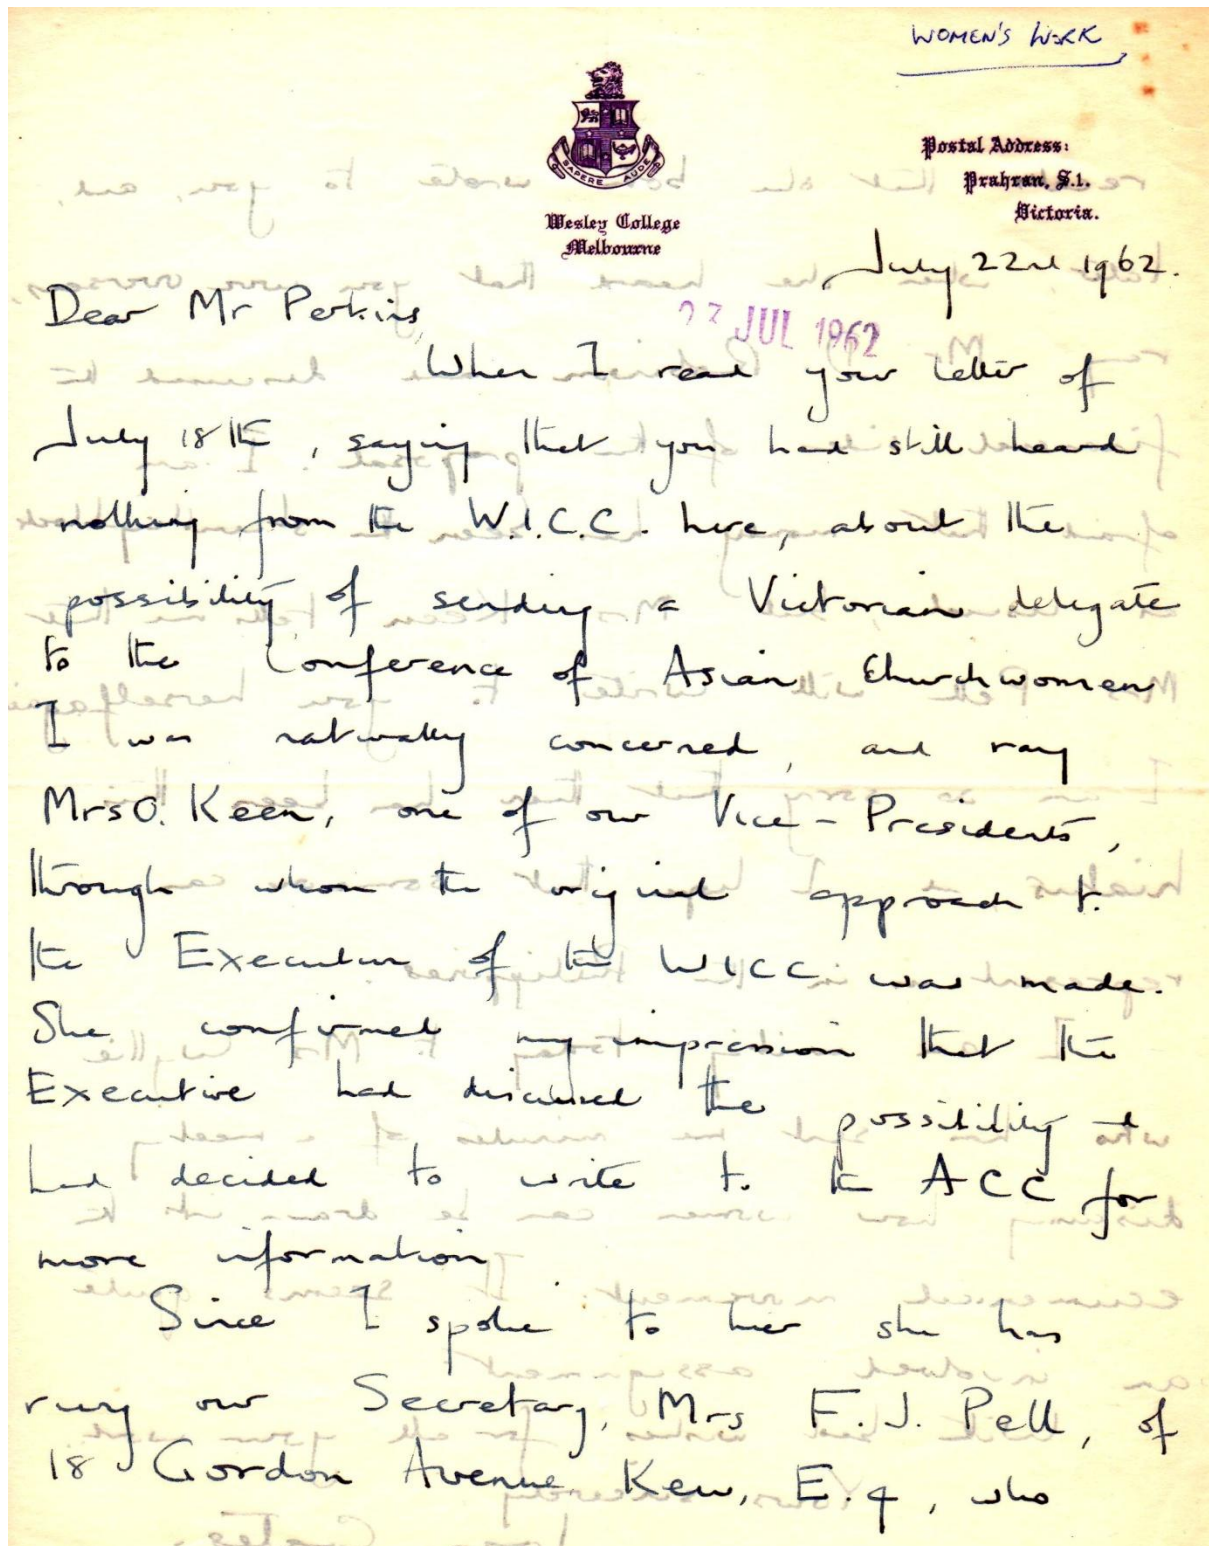 WOMEN'S WORK
SAPERE AUDE
Wesley College
Melbourne
Postal Address:
Prahran, S.1.
Victoria.
July 22nd 1962.
Dear Mr Perkins,
23 JUL 1962
When I read your letter of
July 18th, saying that you had still heard
nothing from the W.I.C.C. here, about the
possibility of sending a Victorian delegate
to the Conference of Asian Churchwomen
I was naturally concerned, and rang
Mrs O. Keen, one of our Vice-Presidents,
through whom the original approach to
the Executive of the WICC was made.
She confirmed my impression that the
Executive had discussed the possibility &
had decided to write to the ACC for
more information
Since I spoke to her she has
rung our Secretary, Mrs F. J. Pell, of
18 Gordon Avenue Kew, E.4, who